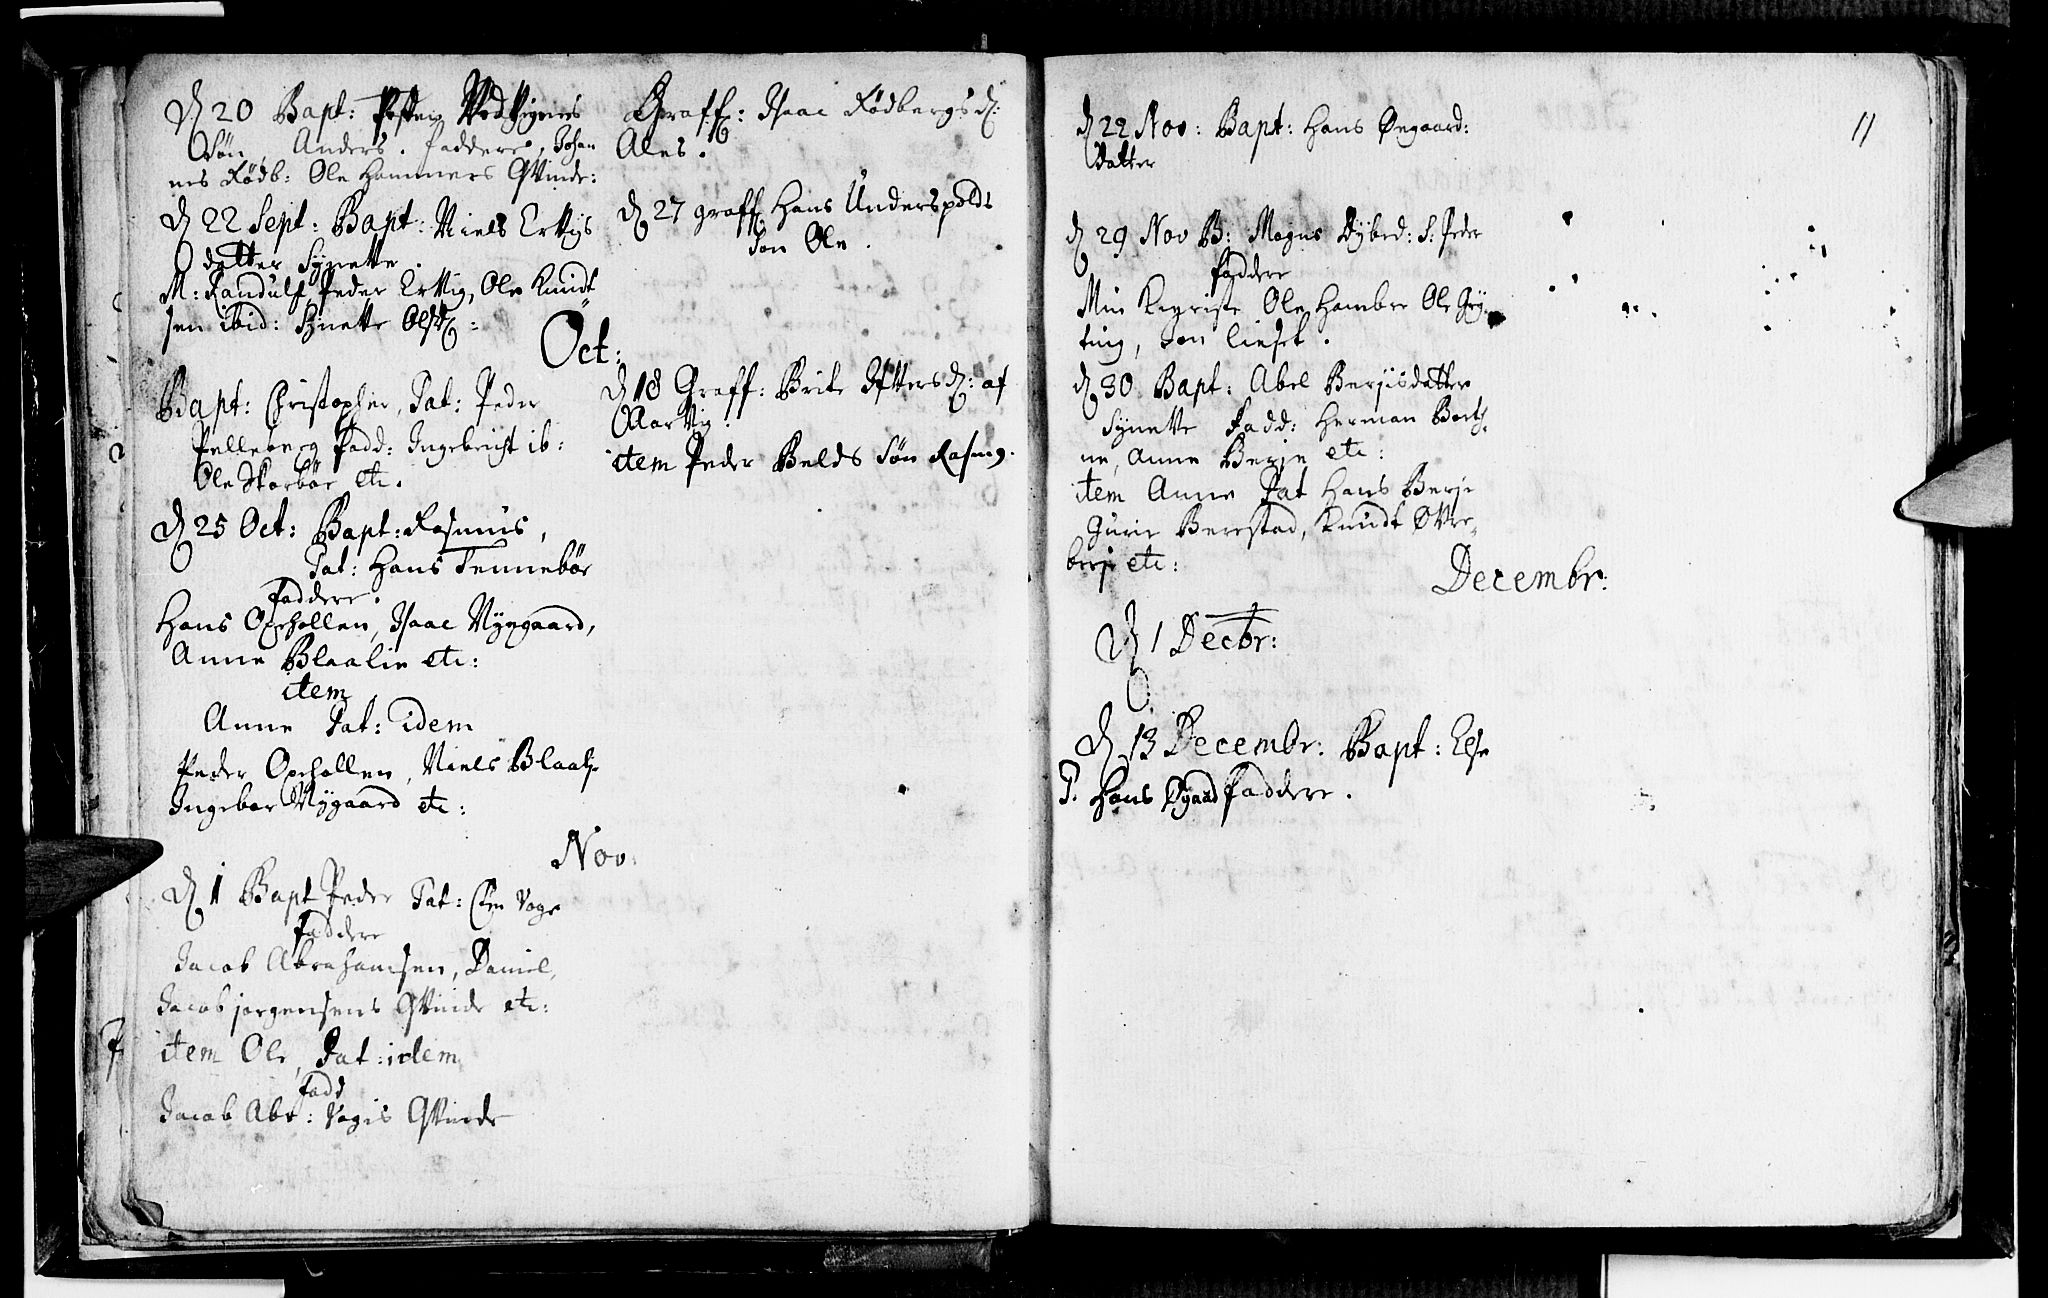 D 20 Bapt:
Søn Anders. Faddere, Johan
nes Rødb: Ole Hammers Qvinde:
D 22 Sept: Bapt: Niels Ervigs
datter Synette.
M: Randulf, Peder Ervig, Ole Knudt
sen ibid: Synette
Oct:
Bapt: Christopher, Pat: Peder
Pelleberg Fadd: Ingebricht ib:
Ole Skorbør etc.
D 25 Oct: Bapt: Rasmus,
Pat: Hans Tennebør
Faddere.
Hans Opshollen, Isaac Nyegaard,
Anne Blaalie etc:
item
Anne Pat: idem
Peder Opshollen, Niels Blaalie
Ingebor Nygaard etc:
Nov:
D 1 Bapt Peder Pat: Sten Voge
Faddere
Jacob Abrahamsen, Daniel,
Jacob jørgensens Qvinde etc:
item Ole, Pat: idem
Fadd
Jacob Abr: Vogis Qvinde
Graff: Isaac Rødbergs d:
Ales.
D 27 graff Hans Underspolds
Søn Ole.
D 18 Graff: Brite d: af
Aarvig.
item Peder Belds Søn Rasmg.
11
D 22 Nov: Bapt: Hans Øegaard:
datter
D 29 Nov B: Mogns Dybed: S. Peder
Faddere
Min Kieriste Ole Hambre Ole Gry
ting, Jon lieset.
D 30 Bapt: Abel Berjisdatter
Synette Fadd: Herman
ne, Anne Berje etc:
item Anne Pat Hans Berje
Gurie Berestad, Knudt Øvre-
berje etc:
Decembr:
D 1 Decbr:
D 13 Decembr: Bapt: Else
P. Hans Øgaad Faddere.